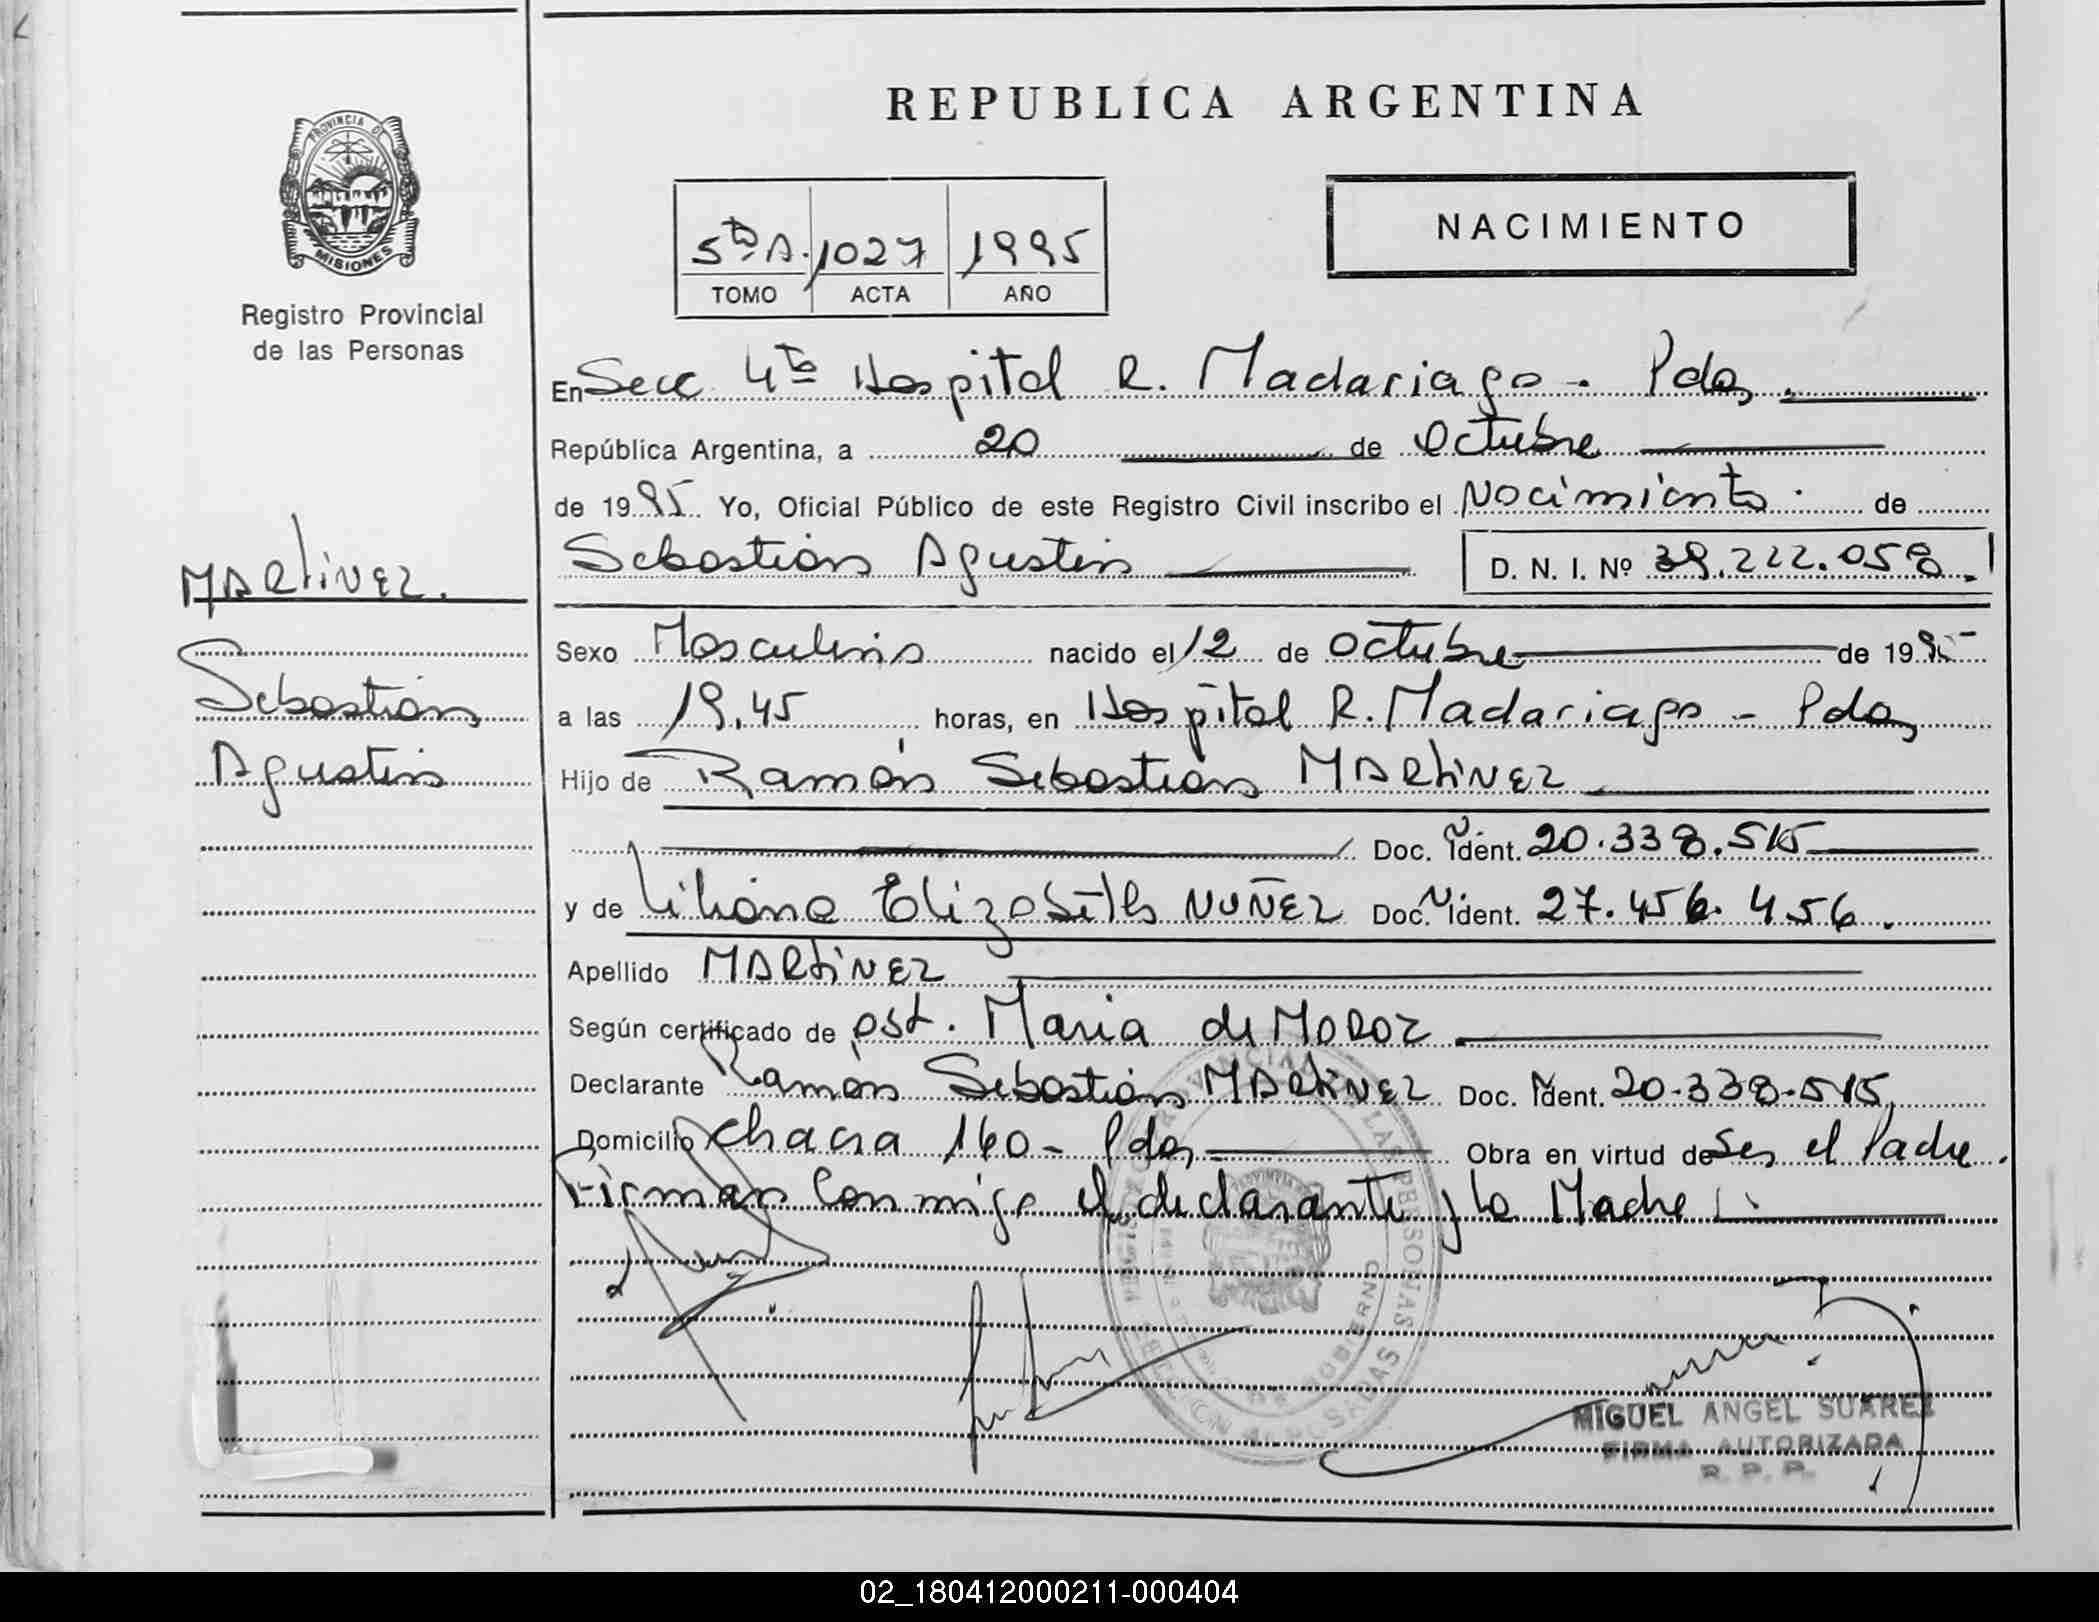 REPUBLICA ARGENTINA
PROVINCIA DE
MISIONES
Registro Provincial
de las Personas
5to A. 1027 1995
TOMO ACTA AÑO
NACIMIENTO
En Secc 4ta Hospital R. Madariaga - Pdas.
República Argentina, a 20 de Octubre
de 1995 Yo, Oficial Público de este Registro Civil inscribo el Nacimiento de
Sebastián Agustin D. N. I. Nº 39.222.058
MARtiNEZ.
Sebastián
Agustin
Sexo Masculino nacido el 12 de Octubre de 1995
a las 19,45 horas, en Hospital R. Madariaga - Pdas
Hijo de Ramón Sebastián MARtiNEZ
Doc. Ident. 20.338.515
y de Liliana Elizabeth NUÑEZ Doc. Ident. 27.456.456.
Apellido MARtiNEZ
Según certificado de obst. Maria de MOROZ
Declarante Ramón Sebastián MARtiNEZ Doc. Ident. 20.338.515
Domicilio Chacra 160 - Pdas Obra en virtud de Ser el Padre.
Firman Conmigo el declarante y la Madre
MIGUEL ANGEL SUAREZ
FIRMA AUTORIZADA
R. P. P.
02_180412000211-000404